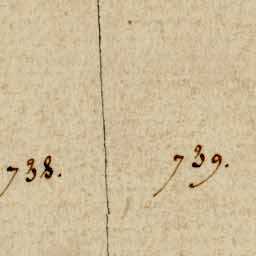 738. 739.